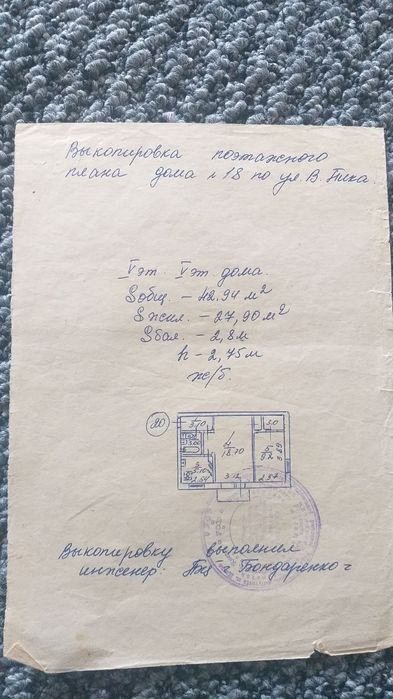 Выкопировка поэтажного
плана дома № 18 по ул. В. Пика.
V эт. V эт. дома.
Sобщ. – 42.94 м²
Sжил. – 27,90 м²
Sбал. – 2,8 м
h – 2,75 м
ж/б.
20
3.70
5.0
18.70
9.2
3.49
3.12
2.97
Выкопировку выполнил
инженер. Бондаренко